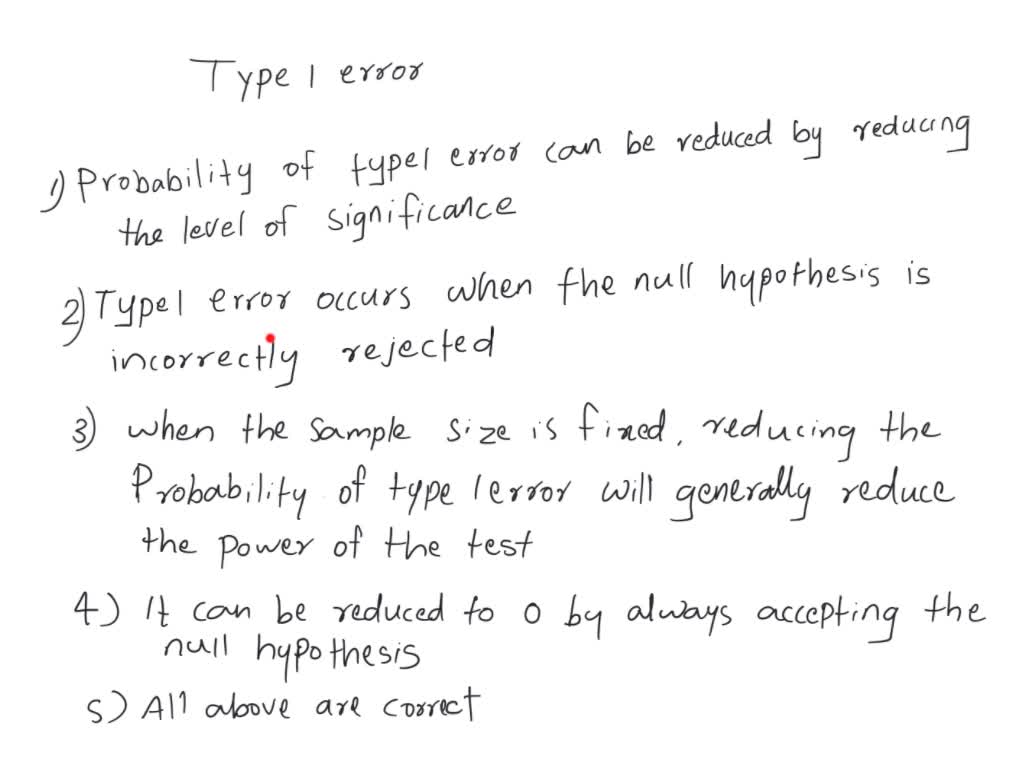 Type 1 error
1) Probability of type1 error can be reduced by reducing
the level of significance
2) Type1 error occurs when the null hypothesis is
incorrectly rejected
3) when the sample size is fixed, reducing the
Probability of type 1 error will generally reduce
the power of the test
4) It can be reduced to 0 by always accepting the
null hypothesis
5) All above are correct